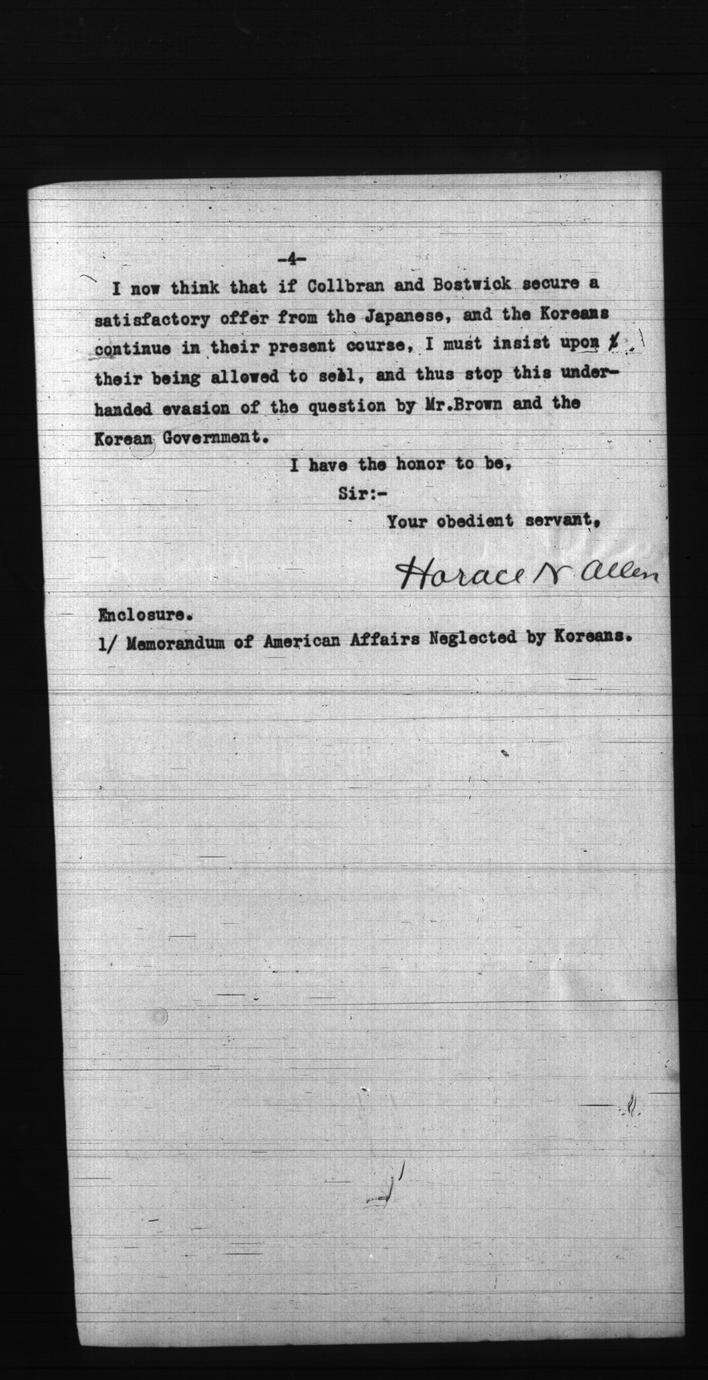 -4-
I now think that if Collbran and Bostwick secure a
satisfactory offer from the Japanese, and the Koreans
continue in their present course, I must insist upon
their being allowed to sell, and thus stop this under-
handed evasion of the question by Mr.Brown and the
Korean Government.
I have the honor to be,
Sir:-
Your obedient servant,
Horace N Allen
Enclosure.
1/ Memorandum of American Affairs Neglected by Koreans.